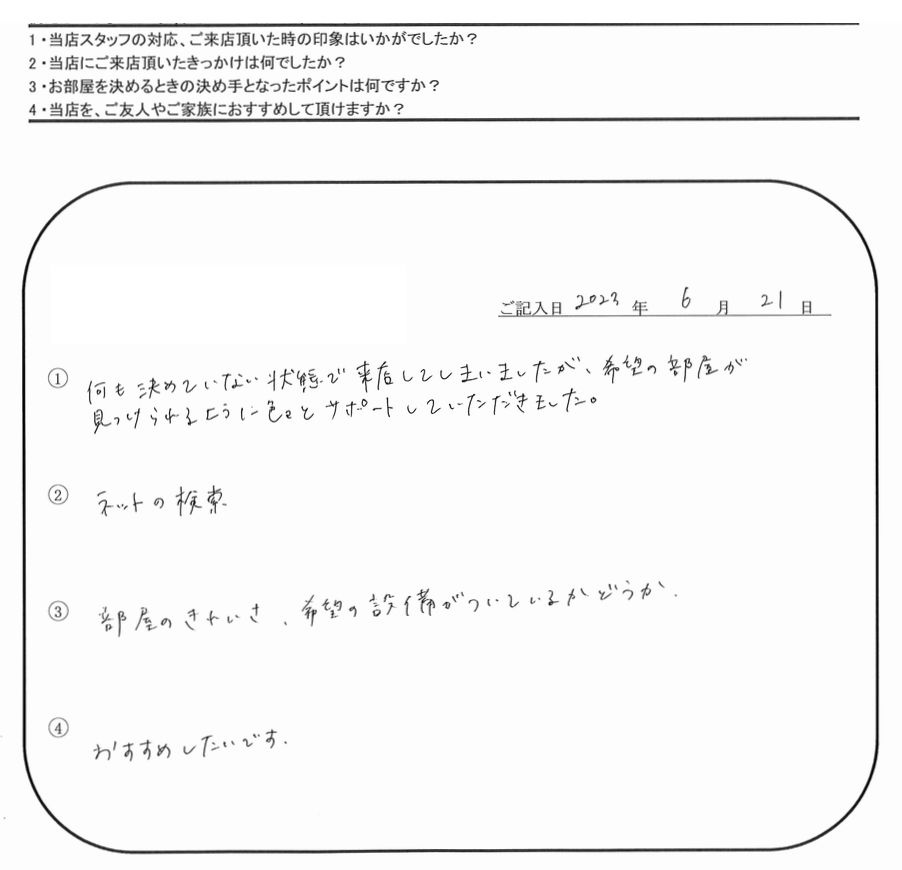 1・当店スタッフの対応、ご来店頂いた時の印象はいかがでしたか？
2・当店にご来店頂いたきっかけは何でしたか？
3・お部屋を決めるときの決め手となったポイントは何ですか？
4・当店を、ご友人やご家族におすすめして頂けますか？
ご記入日 2023 年 6 月 21 日
① 何も決めていない状態で来店してしまいましたが、希望の部屋が
見つけられるように色々とサポートしていただきました。
② ネットの検索
③ 部屋のきれいさ、希望の設備がついているかどうか.
④ おすすめしたいです.